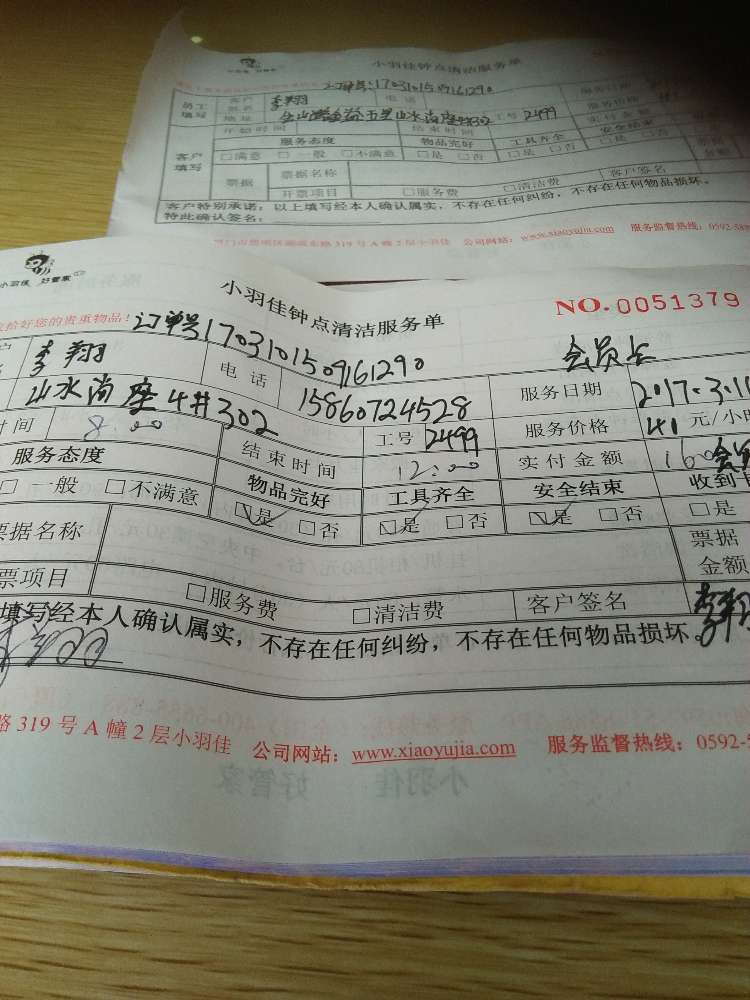 小羽佳钟点清洁服务单
订单号:1703101509161290
服务日期
员工填写
客户姓名
李翔
电话
服务价格
地址
山水尚座4#302
工号
2499
实付金额
开始时间
结束时间
安全结束
服务态度
物品完好
工具齐全
□是 □否
客户填写
□满意 □一般 □不满意
□是 □否
□是 □否
票据
票据名称
客户签名
开票项目
□服务费
□清洁费
客户特别承诺:以上填写经本人确认属实,不存在任何纠纷,不存在任何物品损坏。
特此确认签名:
319号A幢2层小羽佳 公司网站:www.xiaoyujia.com 服务监督热线:0592-
小羽佳 好管家
小羽佳钟点清洁服务单
NO.0051379
拾好您的贵重物品!
订单号1703101509161290
会员卡
李翔
电话
15860724528
服务日期
2017.3.11
山水尚座4#302
工号
2499
服务价格
41元/小时
时间
8:00
结束时间
12:00
实付金额
160
服务态度
物品完好
工具齐全
安全结束
收到
□一般 □不满意
☑是 □否
☑是 □否
☑是 □否
□是
票据名称
票据金额
票项目
□服务费
□清洁费
客户签名
李翔
填写经本人确认属实,不存在任何纠纷,不存在任何物品损坏。
路319号A幢2层小羽佳 公司网站:www.xiaoyujia.com 服务监督热线:0592-5